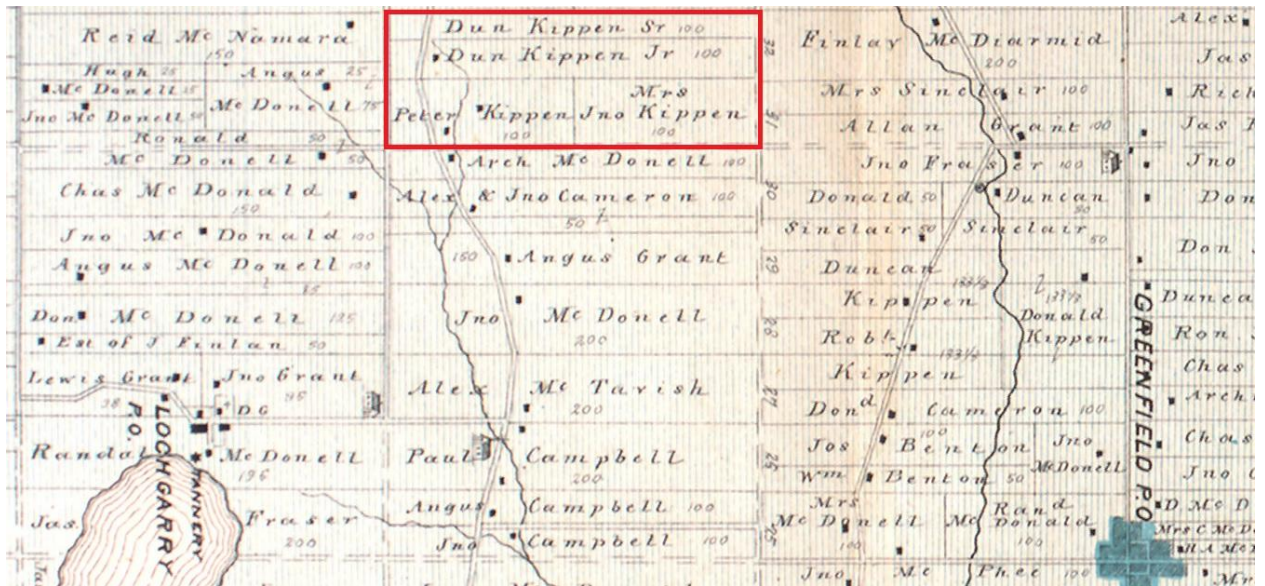 Reid McNamara
150
Hugh 25
McDonell 15
Angus 25
McDonell 75
Jno McDonell 50
Ronald 50
McDonell 50
Chas McDonald
150
Jno McDonald 100
Angus McDonell 100
85
Don McDonell 135
Est of J Finlan 50
Lewis Grant
38
Jno Grant
95
D G
LOCHGARRY
P.O.
TANNERY
Randal McDonell
196
Jas. Fraser
200
Dun Kippen Sr 100
Dun Kippen Jr 100
Peter Kippen
100
Mrs
Jno Kippen
100
Arch McDonell 100
Alex & Jno Cameron 100
50
150
Angus Grant
Jno McDonell
200
Alex McTavish
200
Paul Campbell
200
Angus Campbell 100
Jno Campbell 100
32
31
30
29
28
27
26
25
Finlay McDiarmid
200
Mrs Sinclair 100
Allan Grant 100
Jno Fraser 100
Donald 50
Sinclair 50
Duncan 50
Sinclair 50
Duncan
Kippen 133⅓
Robt
Kippen 133⅓
133⅓
Donald
Kippen
Dond Cameron 100
Jos Benton
100
Wm Benton 50
Jno
McDonell
Mrs
McDonell
100
Rand
McDonald
100
Jno McPhee 100
GREENFIELD P.O.
Alex
Jas
Rich
Jas
Jno
Don
Don
Duncan
Ron
Chas
Arch
Chas
Jno
D. McD
Mrs C McD
H A McD
Mr